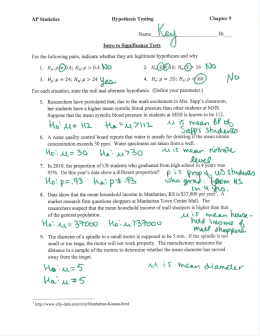 AP Statistics Hypothesis Testing Chapter 9
Name Key Hr
Intro to Significance Tests
For the following pairs, indicate whether they are legitimate hypotheses and why.
No
No
Yes
No
For each situation, state the null and alternate hypothesis. (Define your parameter.)
5. Researchers have postulated that, due to the math excitement in Mrs. Sapp's classroom,
her students have a higher mean systolic blood pressure than other students at MHS.
Suppose that the mean systolic blood pressure in students at MHS is known to be 112.
Ho: μ = 112 Ha: μ > 112 μ is mean BP of
Sapp's students
6. A water quality control board reports that water is unsafe for drinking if the mean nitrate
concentration exceeds 30 ppm. Water specimens are taken from a well.
Ho: μ = 30 Ha: μ > 30 μ is mean nitrate
level
7. In 2010, the proportion of US students who graduated from high school in 4 years was
93%. Do this year's data show a different proportion?
Ho: p = .93 Ha: p ≠ .93 p is prop of US students
who grad. from HS
in 4 yrs.
8. Data show that the mean household income in Manhattan, KS is $37,000 per year. A
market research firm questions shoppers at Manhattan Town Center Mall. The
researchers suspect that the mean household income of mall shoppers is higher than that
of the general population.
Ho: μ = 37000 Ha: μ > 37000 μ is mean house-
hold income of
mall shoppers
9. The diameter of a spindle in a small motor is supposed to be 5 mm. If the spindle is too
small or too large, the motor will not work properly. The manufacturer measures the
diameter in a sample of the motors to determine whether the mean diameter has moved
away from the target.
Ho: μ = 5 μ is mean diameter
Ha: μ ≠ 5